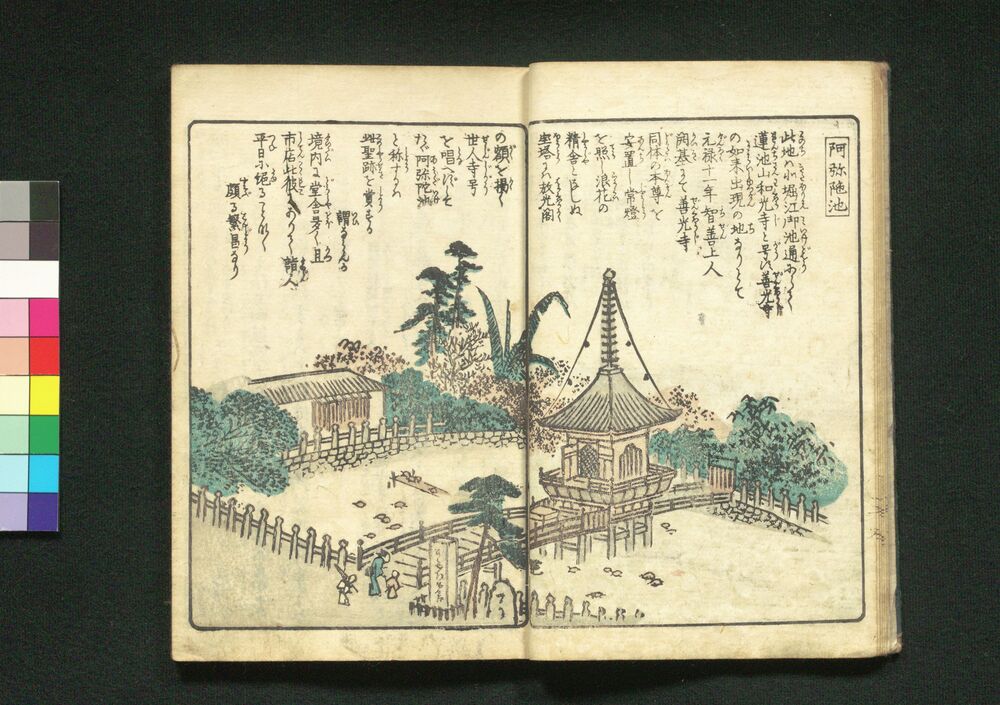 阿弥陀池
此地ハ北堀江御池通にありて
蓮池山和光寺と号す善光寺
の如来出現の地なりとて
元禄十一年智善上人
開基にして善光寺
同体の本尊を
安置し常燈
を照し浪花の
精舎と
宝塔に放光閣
の額を掲く
世人寺号
を唱へずして
たゞ阿弥陀池
と称するハ
聖跡を賞する
謂なるべし
境内に堂舎多く且
市店此彼にありて詣人
平日に絶ることなく
頗る繁昌なり